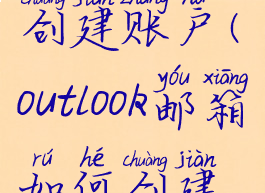 chuàng jiàn zhàng hù
创建账户(
yóu xiāng
outlook邮箱
rú hé chuàng jiàn
如何创建